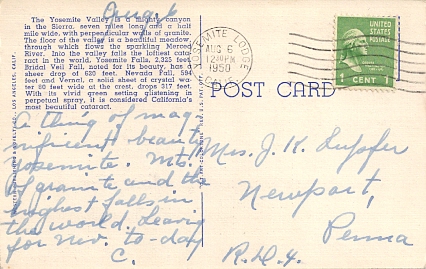 Aug 6
The Yosemite Valley is a mighty canyon
in the Sierra, seven miles long and a half
mile wide, with perpendicular walls of granite.
The floor of the valley is a beautiful meadow,
through which flows the sparkling Merced
River. Into the valley falls the loftiest cata-
ract in the world, Yosemite Falls, 2,325 feet.
Bridal Veil Fall, noted for its beauty, has a
sheer drop of 620 feet. Nevada Fall, 594
feet and Vernal, a solid sheet of crystal wa-
ter 80 feet wide at the crest, drops 317 feet.
With its vivid green setting glistening in
perpetual spray, it is considered California's
most beautiful cataract.
A thing of mag-
nificient beauty
Yosemite. Mts.
of granite and the
highest falls in
the world. Leaving
for Nev. to-day
C.
YOSEMITE LODGE
AUG 6
12 30 PM
1950
CALIF.
UNITED
STATES
POSTAGE
1 CENT 1
POST CARD
Mrs. J. K. Lupfer
Newport,
Penna
R.D. 4.